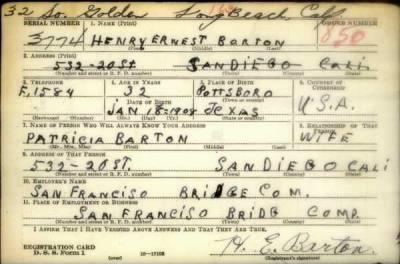 32 So. Golden Long Beach, Calif
SERIAL NUMBER 1. NAME (Print) ORDER NUMBER
3774 HENRY ERNEST BARTON 850
(First) (Middle) (Last)
2. ADDRESS (Print)
532-20 ST SAN DIEGO CALI
(Number and street or R. F. D. number) (Town) (County) (State)
3. TELEPHONE 4. AGE IN YEARS 5. PLACE OF BIRTH 6. COUNTRY OF CITIZENSHIP
F, 1584 32 POTTSBORO
(Town or county)
DATE OF BIRTH U.S.A.
JAN 1908 TEXAS
(Exchange) (Number) (Mo.) (Day) (Yr.) (State or country)
7. NAME OF PERSON WHO WILL ALWAYS KNOW YOUR ADDRESS 8. RELATIONSHIP OF THAT PERSON
PATRICIA BARTON WIFE
(Mr., Mrs., Miss) (First) (Middle) (Last)
9. ADDRESS OF THAT PERSON
532-20 ST. SAN DIEGO CALI
(Number and street or R. F. D. number) (Town) (County) (State)
10. EMPLOYER'S NAME
SAN FRANCISO BRIDGE COM.
11. PLACE OF EMPLOYMENT OR BUSINESS
SAN FRANCISO BRIDG COMP.
(Number and street or R. F. D. number) (Town) (County) (State)
I AFFIRM THAT I HAVE VERIFIED ABOVE ANSWERS AND THAT THEY ARE TRUE.
REGISTRATION CARD
D. S. S. Form 1 16-17105 H. E. Barton
(Registrant's signature)